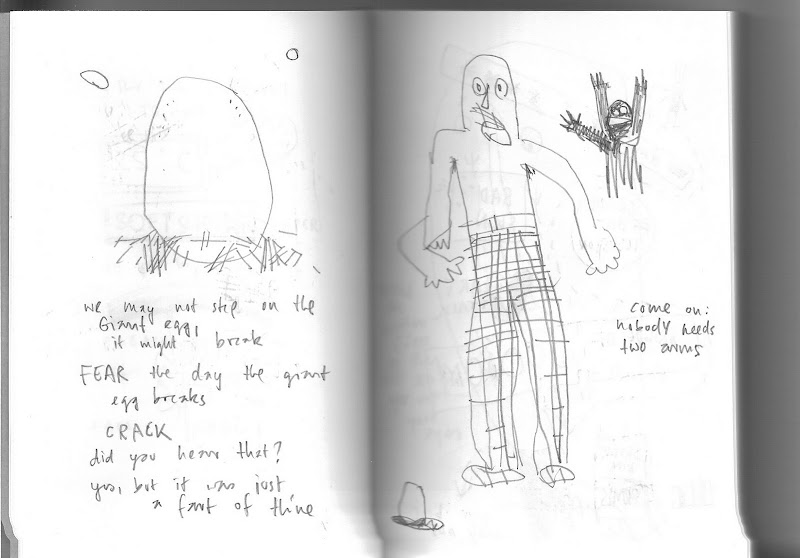 we may not step on the
Giant egg,
it might break
FEAR the day the giant
egg breaks
CRACK
did you hear that?
yes, but it was just
a fart of thine
come on:
nobody needs
two arms